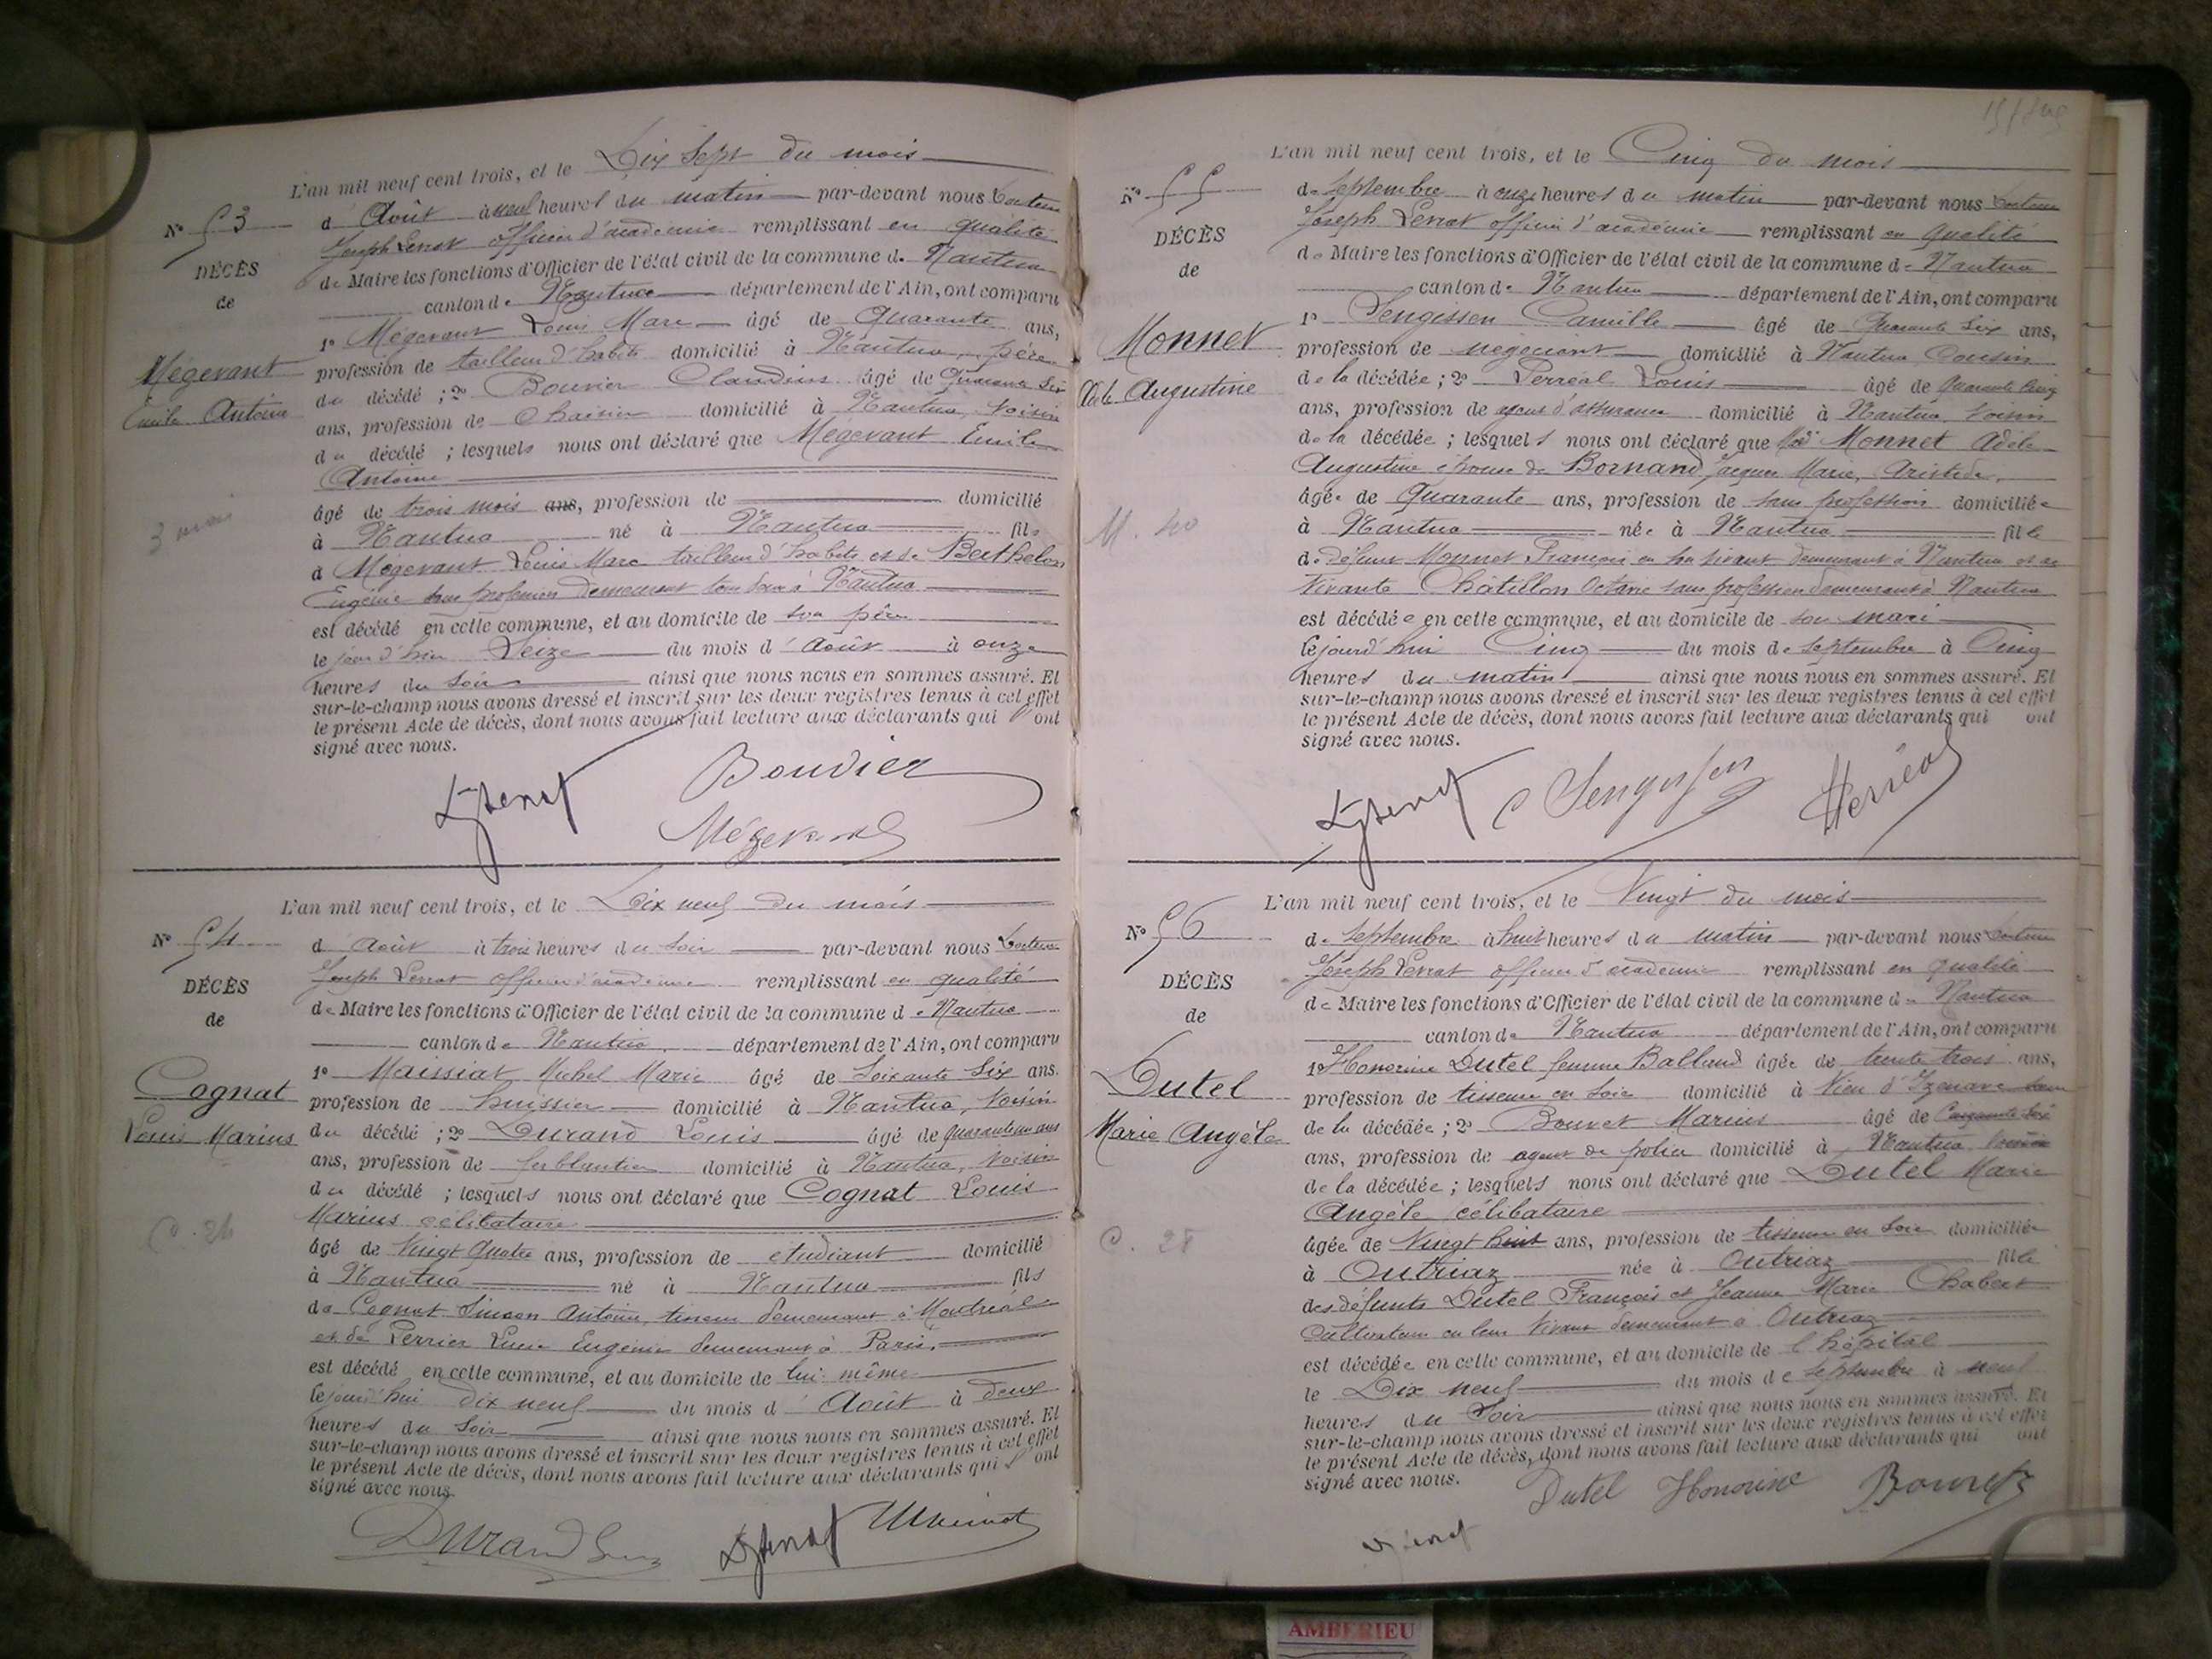 L'an mil neuf cent trois, et le Dix Sept du mois
Nº 53
d'Août à neuf heures du matin par-devant nous
Joseph officier d'académie remplissant en qualité
DÉCÈS
de Maire les fonctions d'Officier de l'état civil de la commune de Nantua
de
canton de Nantua département de l'Ain, ont comparu
1º Mégevant Louis Marc âgé de Quarante ans,
Mégevant
Émile Antoine
profession de tailleur d'habits domicilié à Nantua, père
du décédé ; 2º Bouvier Claudius âgé de Quarante Six
ans, profession de chaisier domicilié à Nantua, voisin
du décédé ; lesquels nous ont déclaré que Mégevant Emile
Antoine
âgé de trois mois ans, profession de domicilié
3 mois
à Nantua né à Nantua fils
d Mégevant Louis Marc tailleur d'habits et de Berthelon
Eugénie sans profession demeurant tous deux à Nantua
est décédé en cette commune, et au domicile de son père
le jour d'hier Seize du mois d'Août à onze
heures du Soir ainsi que nous nous en sommes assuré. Et
sur-le-champ nous avons dressé et inscrit sur les deux registres tenus à cet effet
le présent Acte de décès, dont nous avons fait lecture aux déclarants qui ont
signé avec nous.
Bouvier
Mégevand
L'an mil neuf cent trois, et le Dix neuf du mois
Nº 54
d'Août à trois heures du Soir par-devant nous
Joseph officier d'académie remplissant en qualité
DÉCÈS
de Maire les fonctions d'Officier de l'état civil de la commune de Nantua
de
canton de Nantua département de l'Ain, ont comparu
1º Maissiat Michel Marie âgé de Soixante Six ans.
Cognat
Louis Marius
profession de huissier domicilié à Nantua, voisin
du décédé ; 2º Durand Louis âgé de
ans, profession de ferblantier domicilié à Nantua, voisin
du décédé ; lesquels nous ont déclaré que Cognat Louis
Marius célibataire
C. 24
âgé de Vingt Quatre ans, profession de etudiant domicilié
à Nantua né à Nantua fils
de Cognat Simeon Antoine, demeurant à
et de Perrier Eugénie demeurant à Paris,
est décédé en cette commune, et au domicile de lui même
le jourd'hui dix neuf du mois d'Août à deux
heures du Soir ainsi que nous nous en sommes assuré. Et
sur-le-champ nous avons dressé et inscrit sur les deux registres tenus à cet effet
le présent Acte de décès, dont nous avons fait lecture aux déclarants qui ont
signé avec nous.
Durand
L'an mil neuf cent trois, et le Cinq du mois
Nº 55
de Septembre à onze heures du matin par-devant nous
Joseph officier d'académie remplissant en qualité
DÉCÈS
de Maire les fonctions d'Officier de l'état civil de la commune de Nantua
de
canton de Nantua département de l'Ain, ont comparu
1º Sengissen Camille âgé de Quarante Six ans,
Monnet
Adèle Augustine
profession de négociant domicilié à Nantua Cousin
de la décédée ; 2º Perréal Louis âgé de Quarante Cinq
ans, profession de agent d'assurance domicilié à Nantua, voisin
de la décédée ; lesquels nous ont déclaré que Monnet Adèle
Augustine épouse de Bornand Jacques Marie, Aristide,
âgée de Quarante ans, profession de sans profession domiciliée
M. 40
à Nantua née à Nantua fille
de défunt Monnet François en son vivant demeurant à Nantua et de
vivante Châtillon Octavie sans profession demeurant à Nantua
est décédée en cette commune, et au domicile de son mari
le jourd'hui Cinq du mois de Septembre à Cinq
heures du matin ainsi que nous nous en sommes assuré. Et
sur-le-champ nous avons dressé et inscrit sur les deux registres tenus à cet effet
le présent Acte de décès, dont nous avons fait lecture aux déclarants qui ont
signé avec nous.
C Sengissen Perréal
L'an mil neuf cent trois, et le Vingt du mois
Nº 56
de Septembre à huit heures du matin par-devant nous
Joseph officier d'académie remplissant en qualité
DÉCÈS
de Maire les fonctions d'Officier de l'état civil de la commune de Nantua
de
canton de Nantua département de l'Ain, ont comparu
1º Honorine Dutel femme Balland âgée de trente trois ans,
Dutel
Marie Angèle
profession de tisseuse en soie domicilié à Vieu d'Izenave
de la décédée ; 2º Bouvet Marius âgé de Cinquante Six
ans, profession de agent de police domicilié à Nantua voisin
de la décédée ; lesquels nous ont déclaré que Dutel Marie
Angèle célibataire
C. 28
âgée de Vingt huit ans, profession de tisseuse en soie domiciliée
à Outriaz née à Outriaz fille
des défunts Dutel François et Jeanne Marie Chabert
Cultivateurs en leur vivant demeurant à Outriaz
est décédée en cette commune, et au domicile de l'hôpital
le Dix neuf du mois de Septembre à neuf
heures du Soir ainsi que nous nous en sommes assuré. Et
sur-le-champ nous avons dressé et inscrit sur les deux registres tenus à cet effet
le présent Acte de décès, dont nous avons fait lecture aux déclarants qui ont
signé avec nous.
Dutel Honorine Bouvet
AMBERIEU